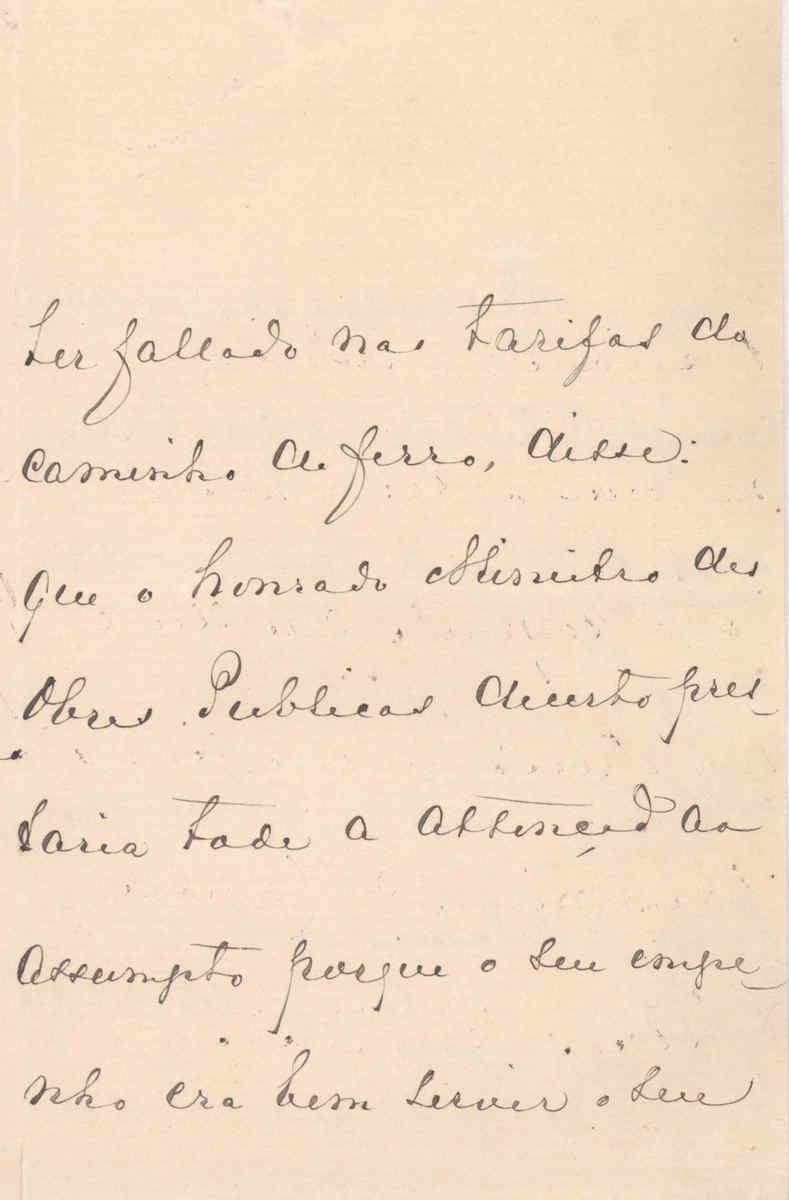 ter fallado nas tarifas do
caminho de ferro, disse:
Que o honrado Ministro das
Obras Publicas decerto pres-
taria toda a attenção ao
assumpto porque o seu empe-
nho era bem servir o seu